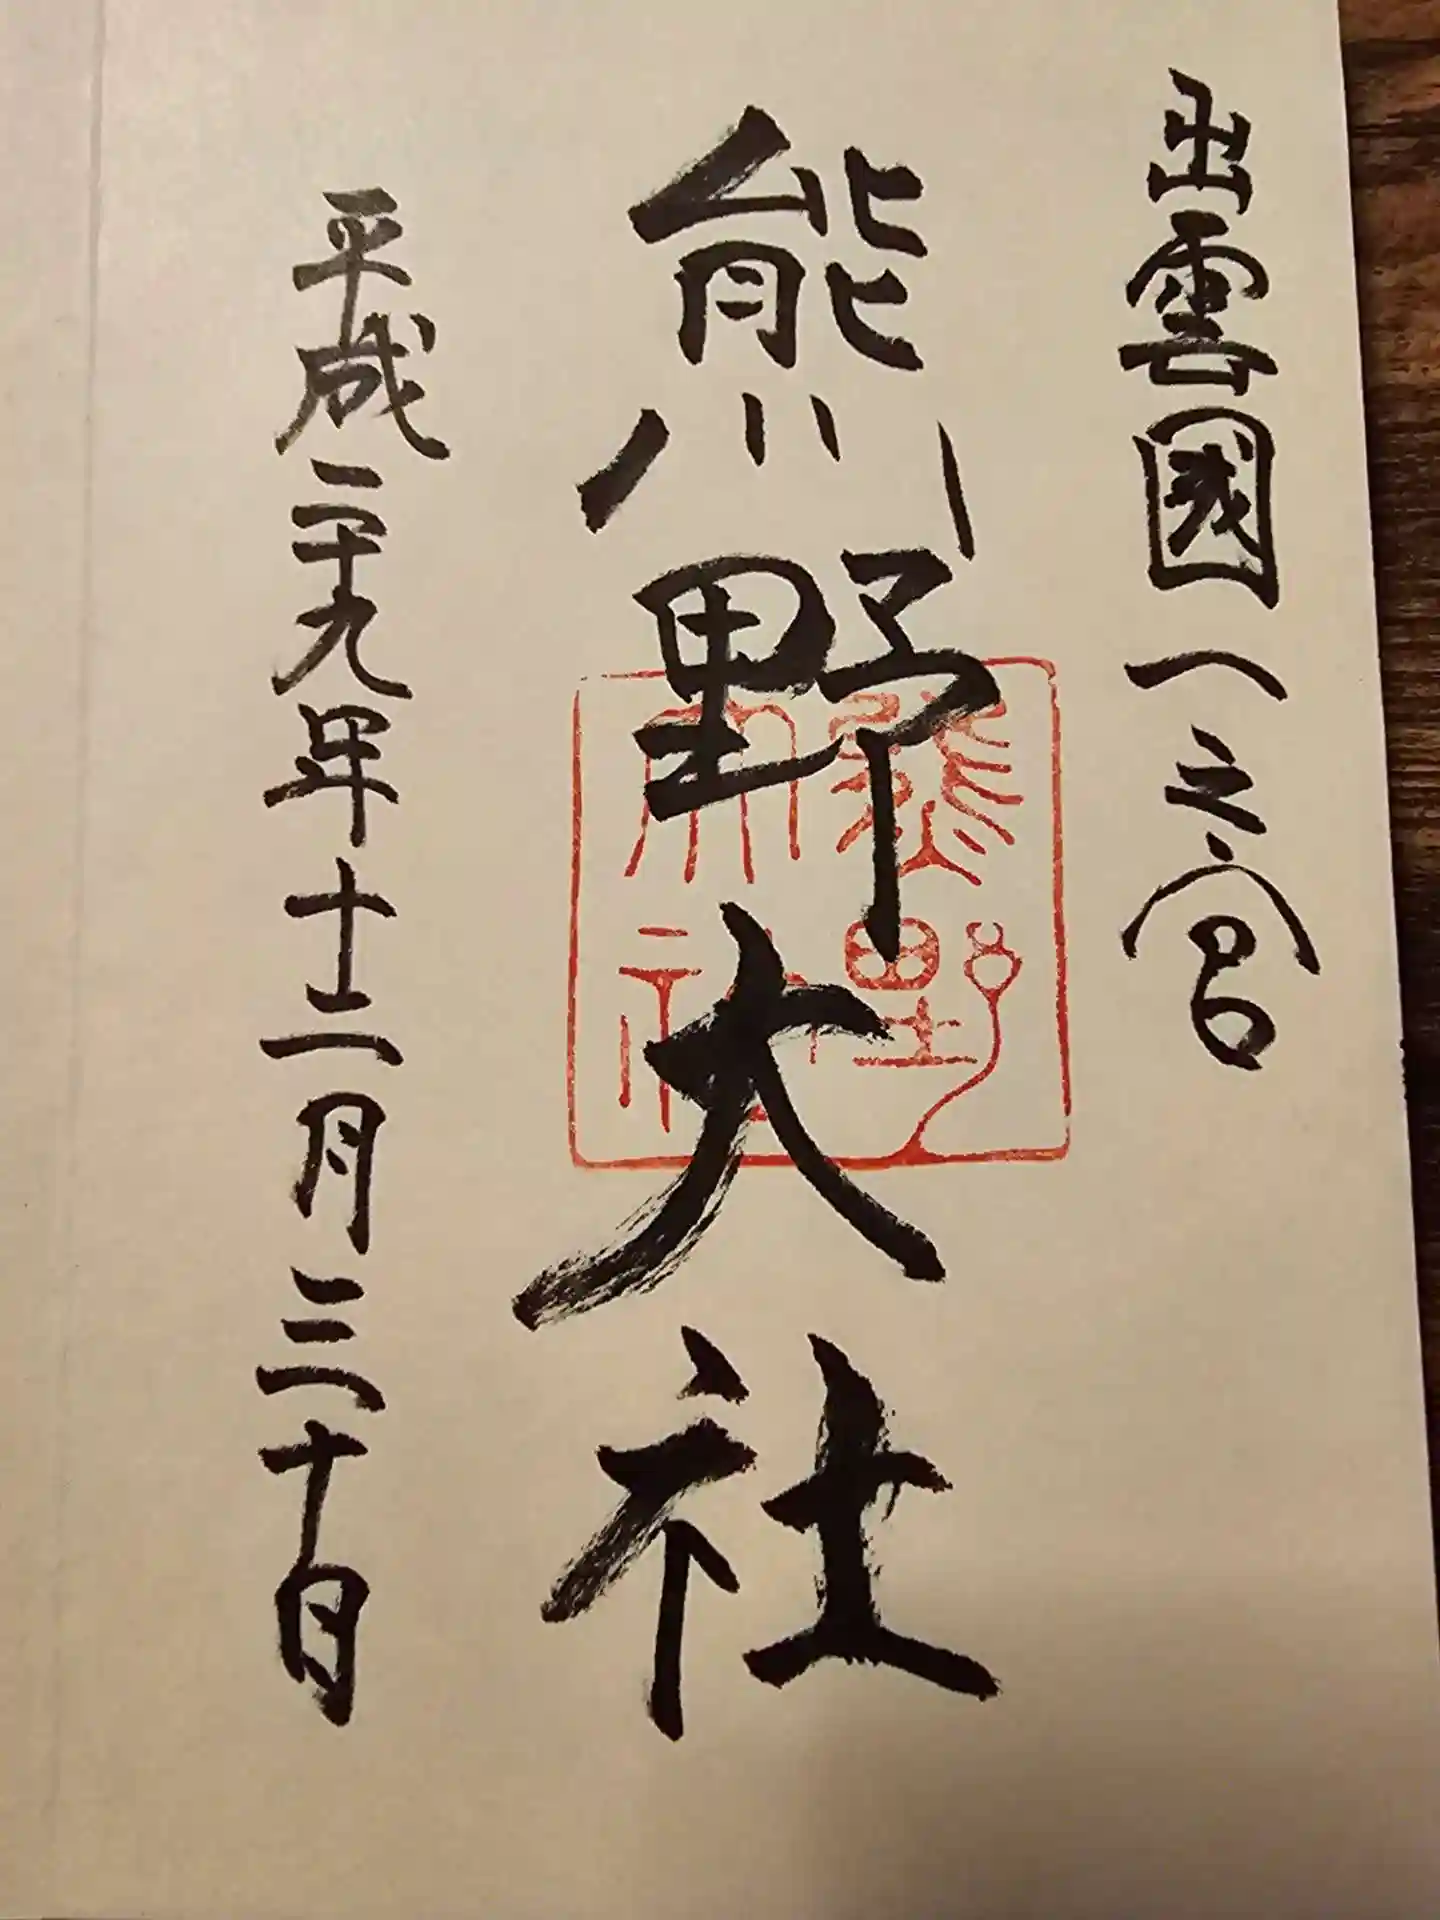 出雲國一之宮
熊野大社
熊野大社
平成二十九年十二月三十日